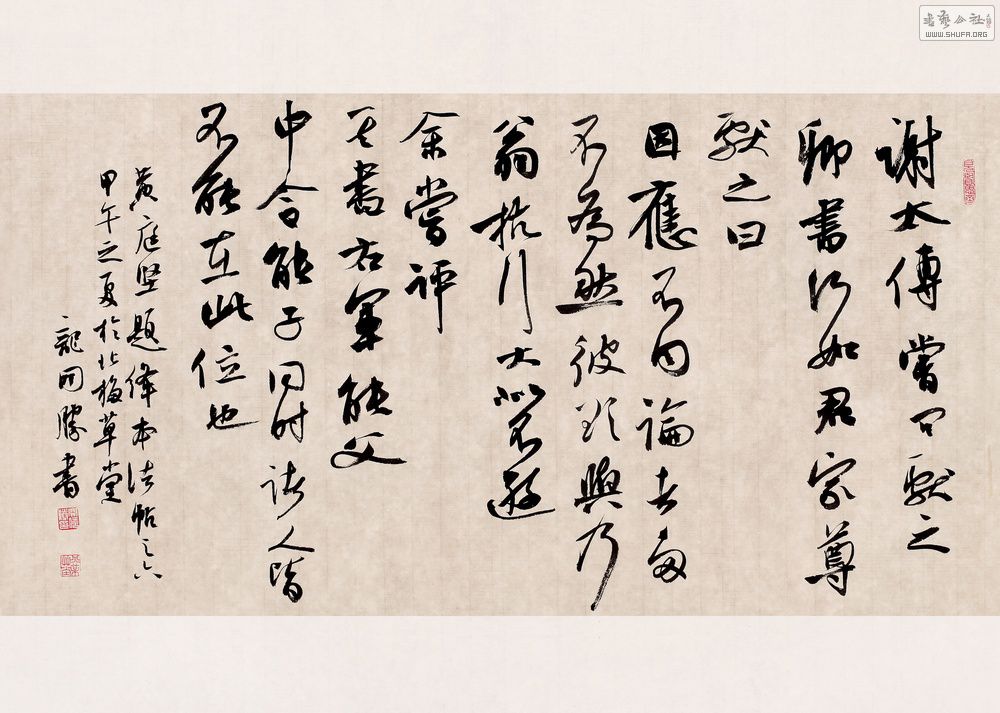 謝太傅嘗問獻之
卿書何如君家尊
獻之曰
因應不同論者多
不為然彼欲與乃
翁抗行大似不遜
余嘗評
其書右軍能父
中令能子同时諸人皆
不能在此位也
黄庭坚題絳本法帖之六
甲午之夏於北梅草堂
龍開勝書
WWW.SHUFA.ORG